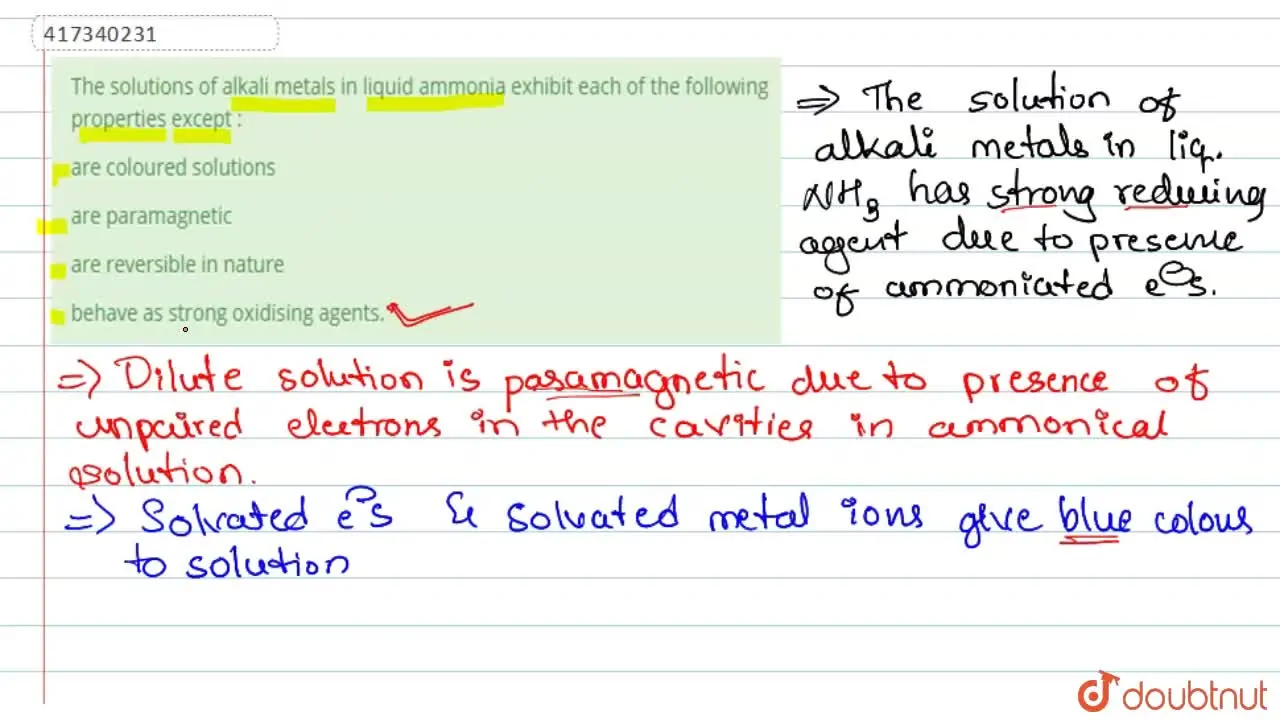 417340231
The solutions of alkali metals in liquid ammonia exhibit each of the following
properties except :
are coloured solutions
are paramagnetic
are reversible in nature
behave as strong oxidising agents.
⇒ The solution of
alkali metals in liq.
NH3 has strong reducing
agent due to presence
of ammoniated e⊖s.
⇒ Dilute solution is paramagnetic due to presence of
unpaired electrons in the cavities in ammonical
solution.
⇒ Solvated e⊖s & solvated metal ions give blue colour
to solution
doubtnut